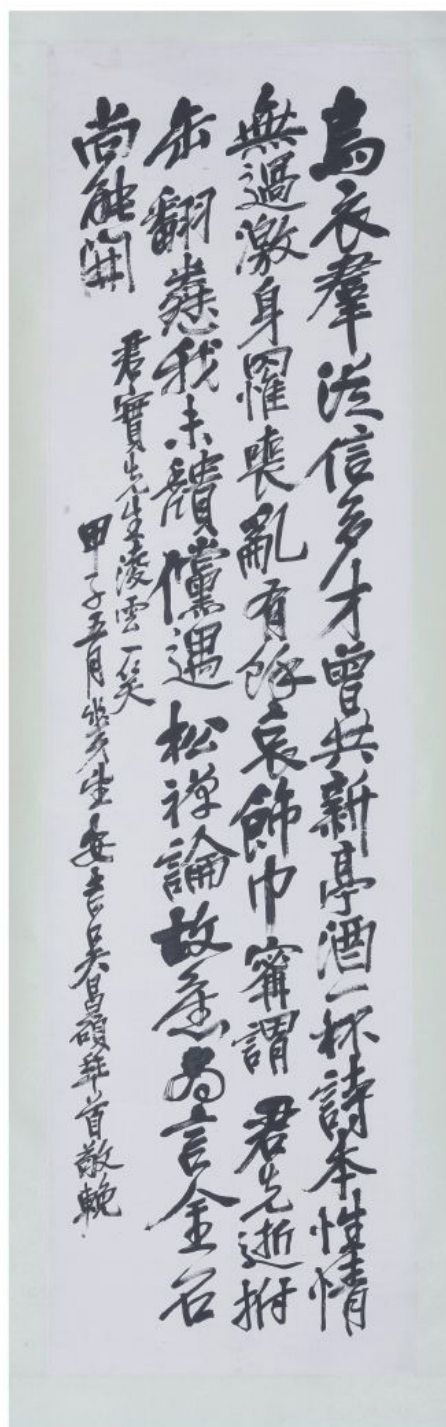 烏衣羣從信多才曾共新亭酒一杯詩本性情
無過激身罹喪亂有餘哀飾巾甯謂君先逝拊
缶翻憖我未隤儻遇松禅論故舊為言金石
尚能開
君實先生淩雲一笑
甲子五月生安吉吴昌碩拜首敬輓